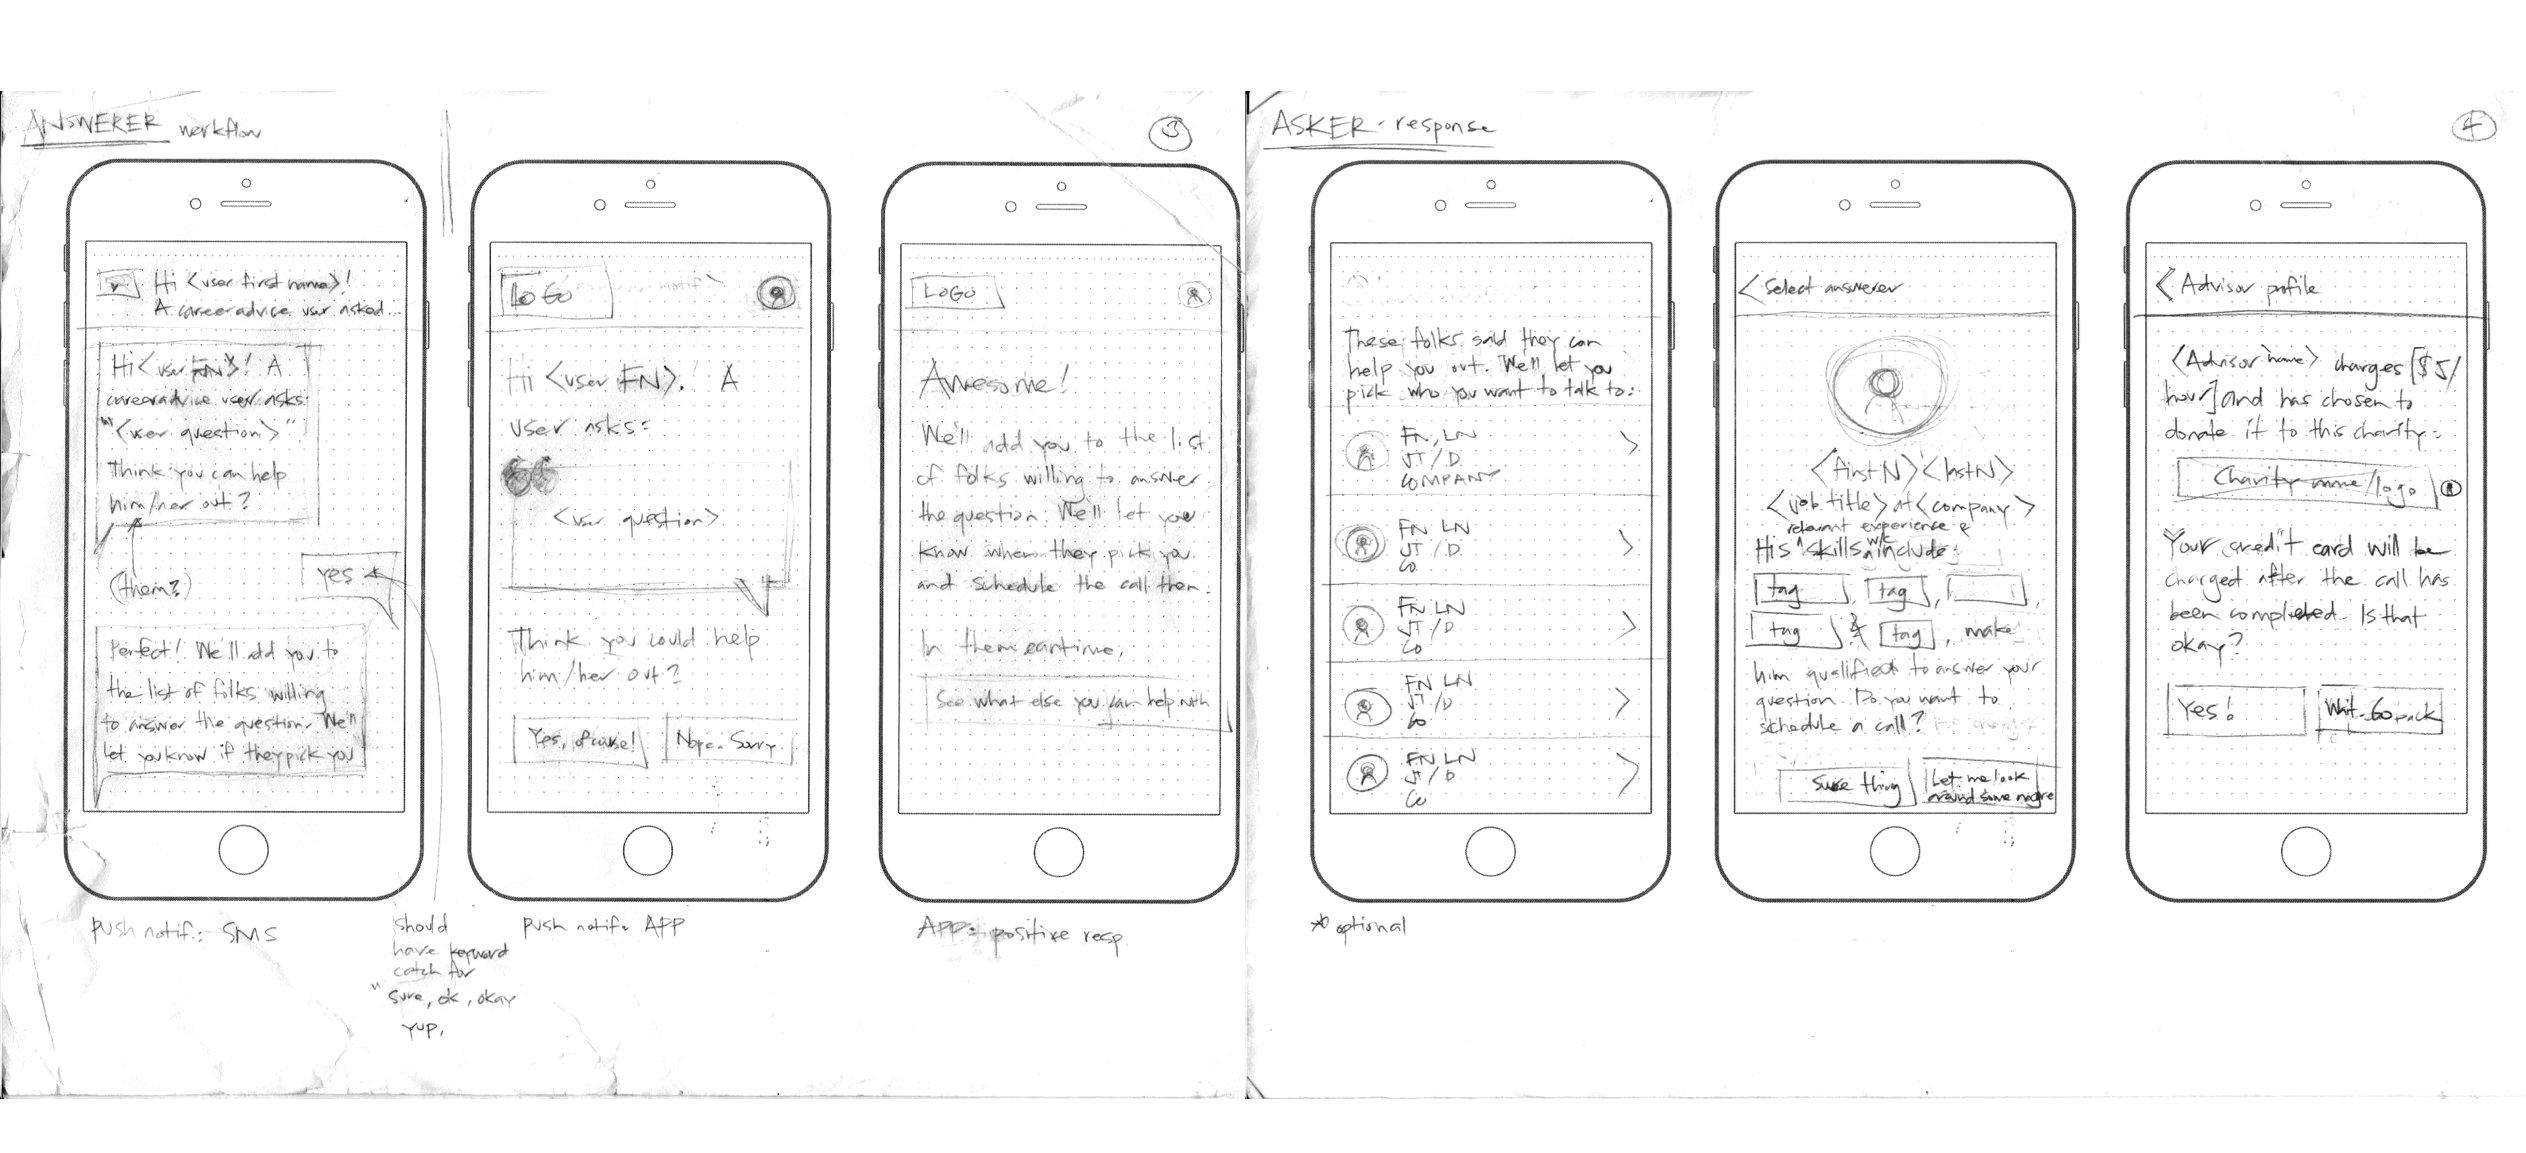 ANSWERER workflow
3
Hi <user first name>!
A careeradvice user asked...
Hi <user FN>! A
careeradvice user asks:
"<user question>"
Think you can help
him/her out?
(them?)
yes
Perfect! We'll add you to
the list of folks willing
to answer the question. We'll
let you know if they pick you
push notif.: SMS
should
have keyword
catch for
"sure, ok, okay
yup,
LOGO
Hi <user FN>. A
user asks:
<user question>
Think you could help
him/her out?
Yes, of course!
Nope. Sorry.
push notif: APP
LOGO
Awesome!
We'll add you to the list
of folks willing to answer
the question. We'll let you
know when they pick you
and schedule the call then.
In the meantime,
See what else you can help with
APP: positive resp.
ASKER: response
4
These folks said they can
help you out. We'll let you
pick who you want to talk to:
FN, LN
JT/D
COMPANY
FN LN
JT/D
CO
FN LN
JT/D
CO
FN LN
JT/D
CO
FN LN
JT/D
CO
* optional
< Select answerer
<firstN> <lastN>
<job title> at <company>
relevant experience &
His skills w/c include:
tag, tag, ,
tag & tag, make
him qualified to answer your
question. Do you want to
schedule a call?
Sure thing
Let me look
around some more
< Advisor profile
<Advisor name> charges [$5/
hour] and has chosen to
donate it to this charity:
Charity name/logo
Your credit card will be
charged after the call has
been completed. Is that
okay?
Yes!
Wait. Go back